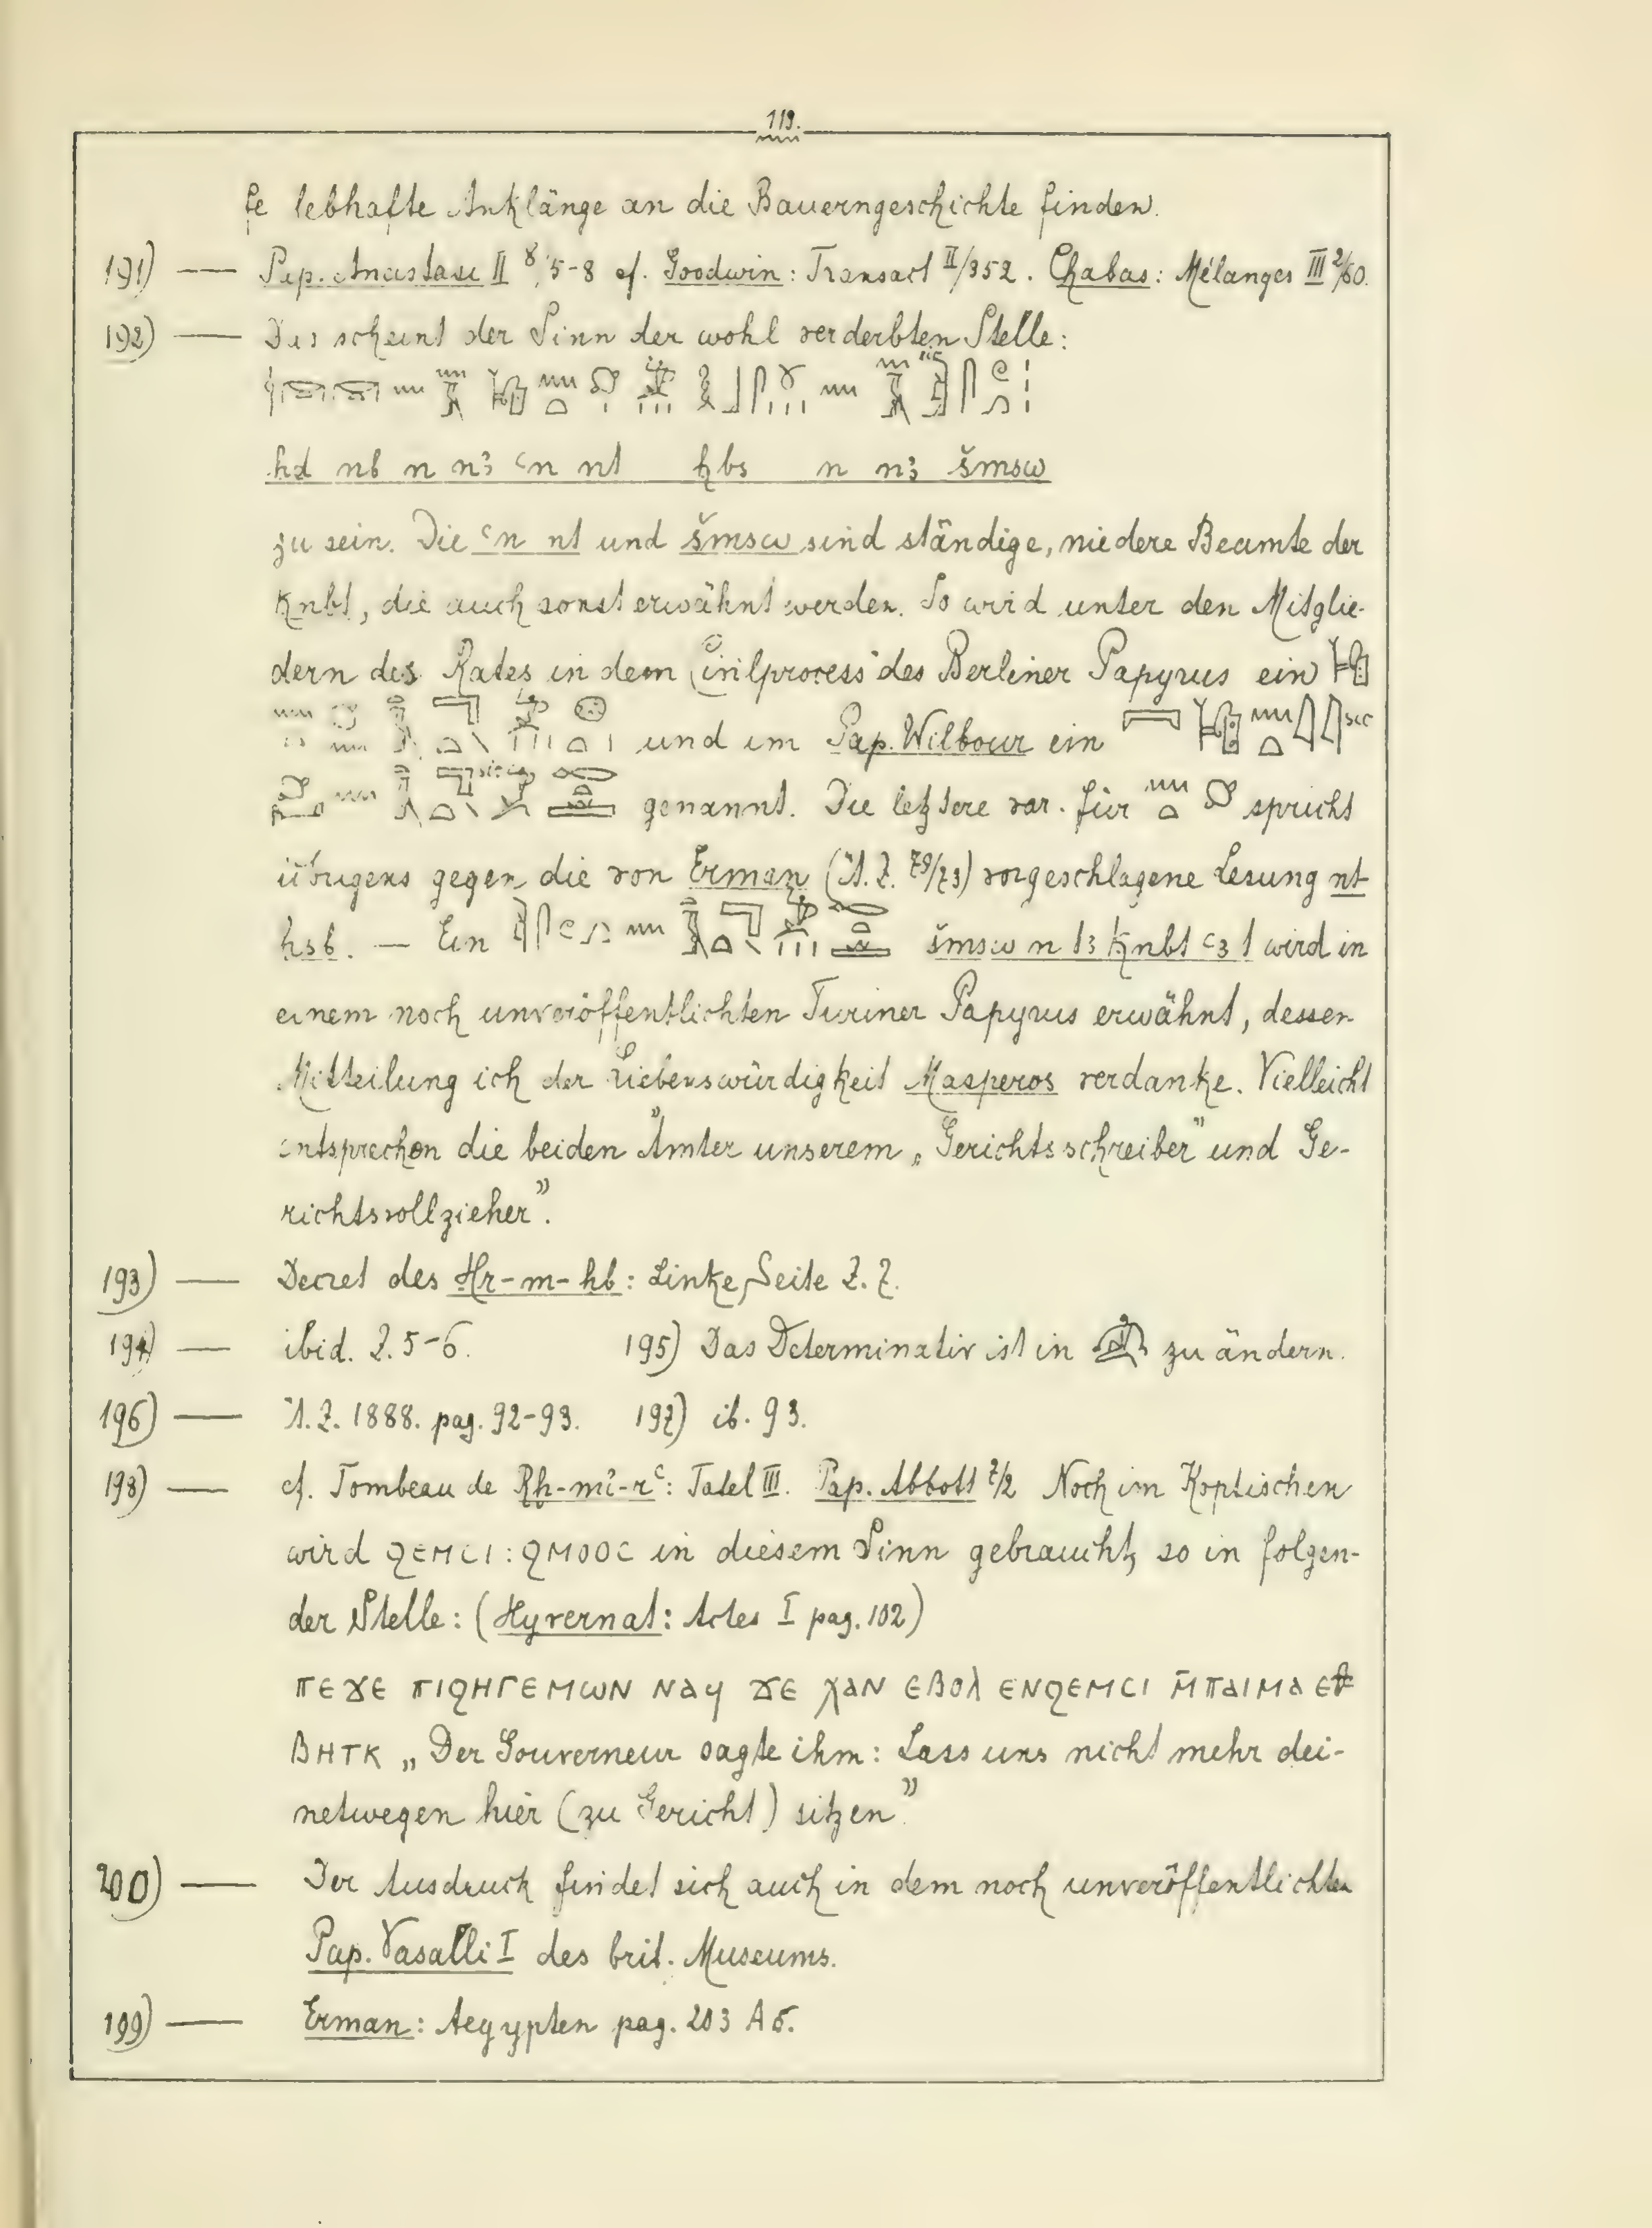 119.
fe lebhafte Anklänge an die Bauerngeschichte finden.
191) — Pap. Anastasi II 8, 5-8 cf. Goodwin: Transact II/352. Chabas: Mélanges III 2/60.
192) — Das scheint der Sinn der wohl verderbten Stelle:
ḥd nb n nꜣ ꜥn nt ḥbs n nꜣ šmsw
zu sein. Die ꜥn nt und šmsw sind ständige, niedere Beamte der
Ḳnbt, die auch sonst erwähnt werden. So wird unter den Mitglie-
dern des Rates in dem Civilprocess des Berliner Papyrus ein
und im Pap. Wilbour ein
genannt. Die letztere var. für spricht
übrigens gegen die von Erman (Ä.Z. 79/73) vorgeschlagene Lesung nt
ḥsb. — Ein šmsw n tꜣ Ḳnbt ꜥꜣt wird in
einem noch unveröffentlichten Turiner Papyrus erwähnt, dessen
Mitteilung ich der Liebenswürdigkeit Masperos verdanke. Vielleicht
entsprechen die beiden Ämter unserem „Gerichtsschreiber” und Ge-
richtsvollzieher”.
193) — Decret des Ḥr-m-ḥb: Linke Seite Z. 7.
194) — ibid. Z. 5-6. 195) Das Determinativ ist in zu ändern.
196) — Ä.Z. 1888. pag. 92-93. 197) ib. 93.
198) — cf. Tombeau de Rḫ-mi-rꜥ: Tafel III. Pap. Abbott 7/2 Noch im Koptischen
wird ϩⲉⲙⲥⲓ : ϩⲙⲟⲟⲥ in diesem Sinn gebraucht, so in folgen-
der Stelle: (Hyvernat: Actes I pag. 102)
ⲡⲉϫⲉ ⲡⲓϩⲏⲅⲉⲙⲱⲛ ⲛⲁϥ ϫⲉ ⲭⲁⲛ ⲉⲃⲟⲗ ⲉⲛϩⲉⲙⲥⲓ ⲙ̄ⲡⲁⲓⲙⲁ ⲉⲑ
ⲃⲏⲧⲕ „Der Gouverneur sagte ihm: Lass uns nicht mehr dei-
netwegen hier (zu Gericht) sitzen”
200) — Der Ausdruck findet sich auch in dem noch unveröffentlichten
Pap. Vasalli I des brit. Museums.
199) — Erman: Aegypten pag. 203 A 5.